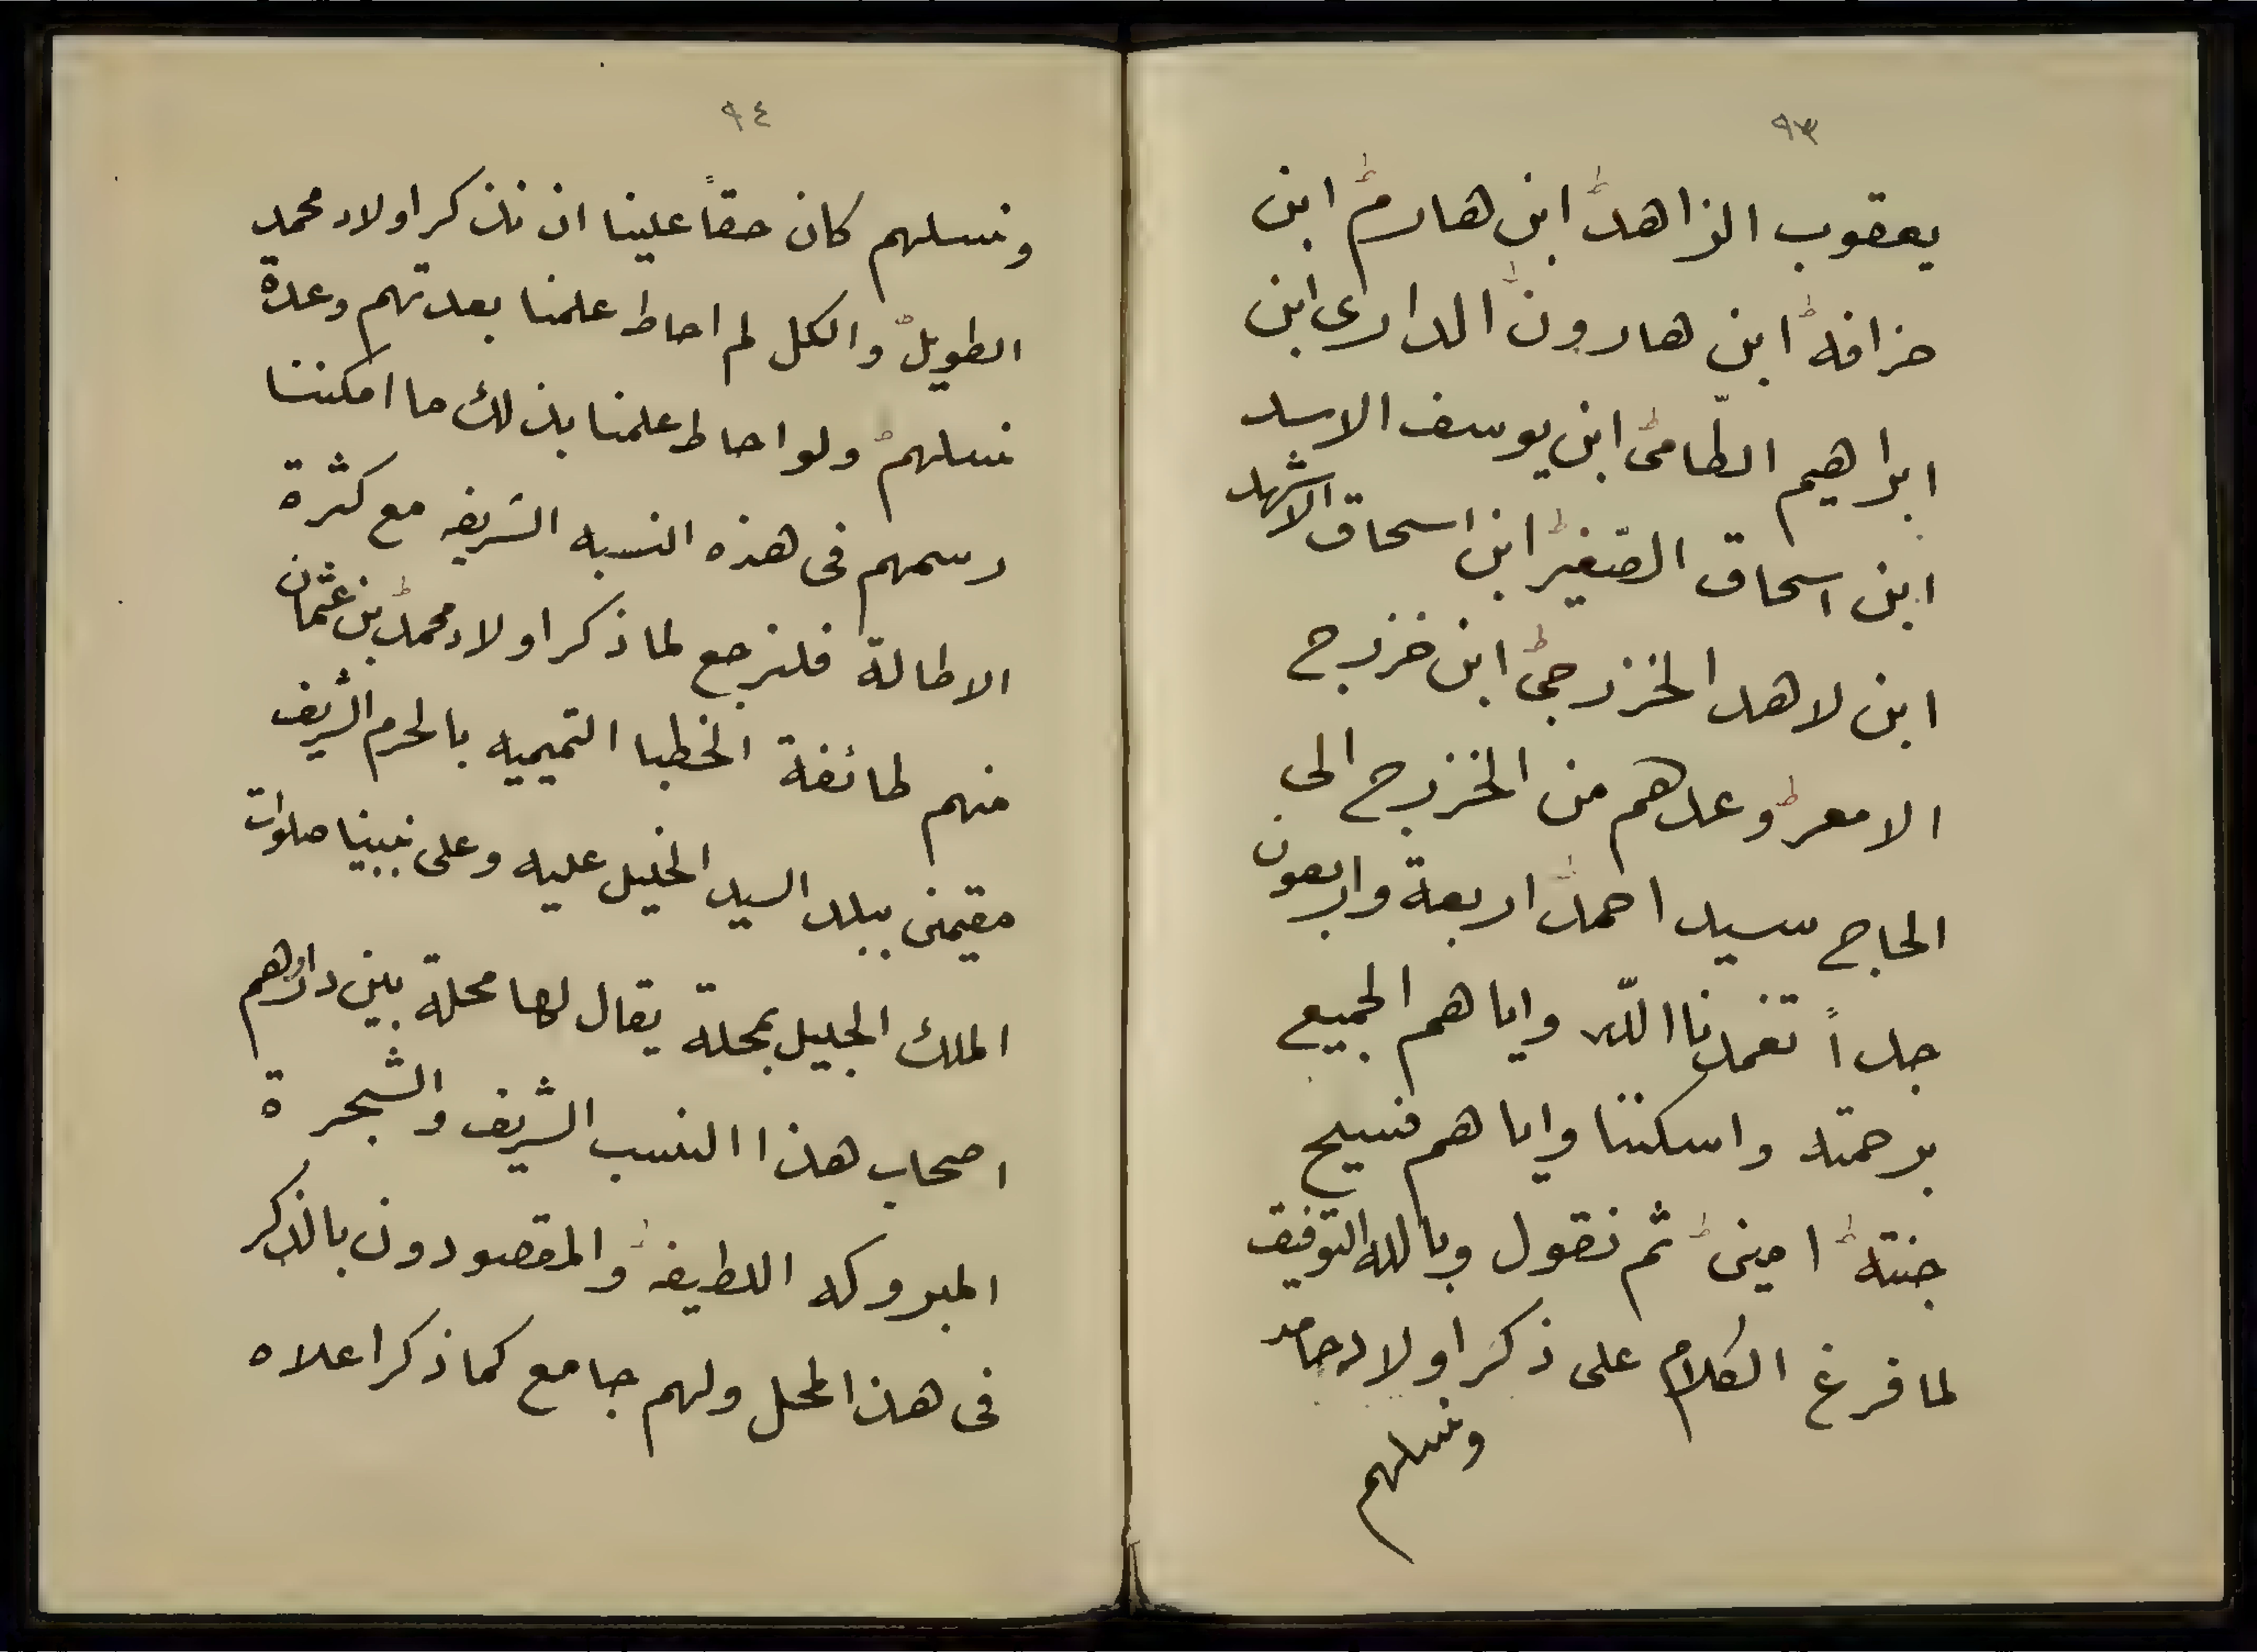 ٩٣
يعقوب الزاهد ابن هارم ابن
خزافه ابن هارون الدارى ابن
ابراهيم الطّامى ابن يوسف الاسد
ابن اسحاق الصّغير ابن اسحاق الاشهد
ابن لاهد الخزرجى ابن خزرج
الامعر وعدهم من الخزرج الى
الحاج سيد احمد اربعة واربعون
جداً تغمدنا اللّه واياهم الجميع
برحمته واسكننا واياهم فسيح
جنته امين ثم نقول وبالله التوفيق
لما فرغ الكلام على ذكر اولاد حامد
ونسلهم
٩٤
ونسلهم كان حقاً علينا ان نذكر اولاد محمد
الطويل والكل لم احاط علمنا بعدتهم وعدة
نسلهم ولو احاط علمنا بذلك ما امكننا
رسمهم فى هذه النسبه الشريفه مع كثرة
الاطالة فلنرجع لما ذكر اولاد محمد بن عثمان
منهم طائفة الخطبا التميميه بالحرم الشريف
مقيمين ببلد السيد الخليل عليه وعلى نبينا صلوات
الملك الجليل بمحلة يقال لها محلة بين دارهم
اصحاب هذا النسب الشريف والشجرة
المبروكه اللطيفه والمقصودون بالذكر
فى هذا المحل ولهم جامع كما ذكر اعلاه